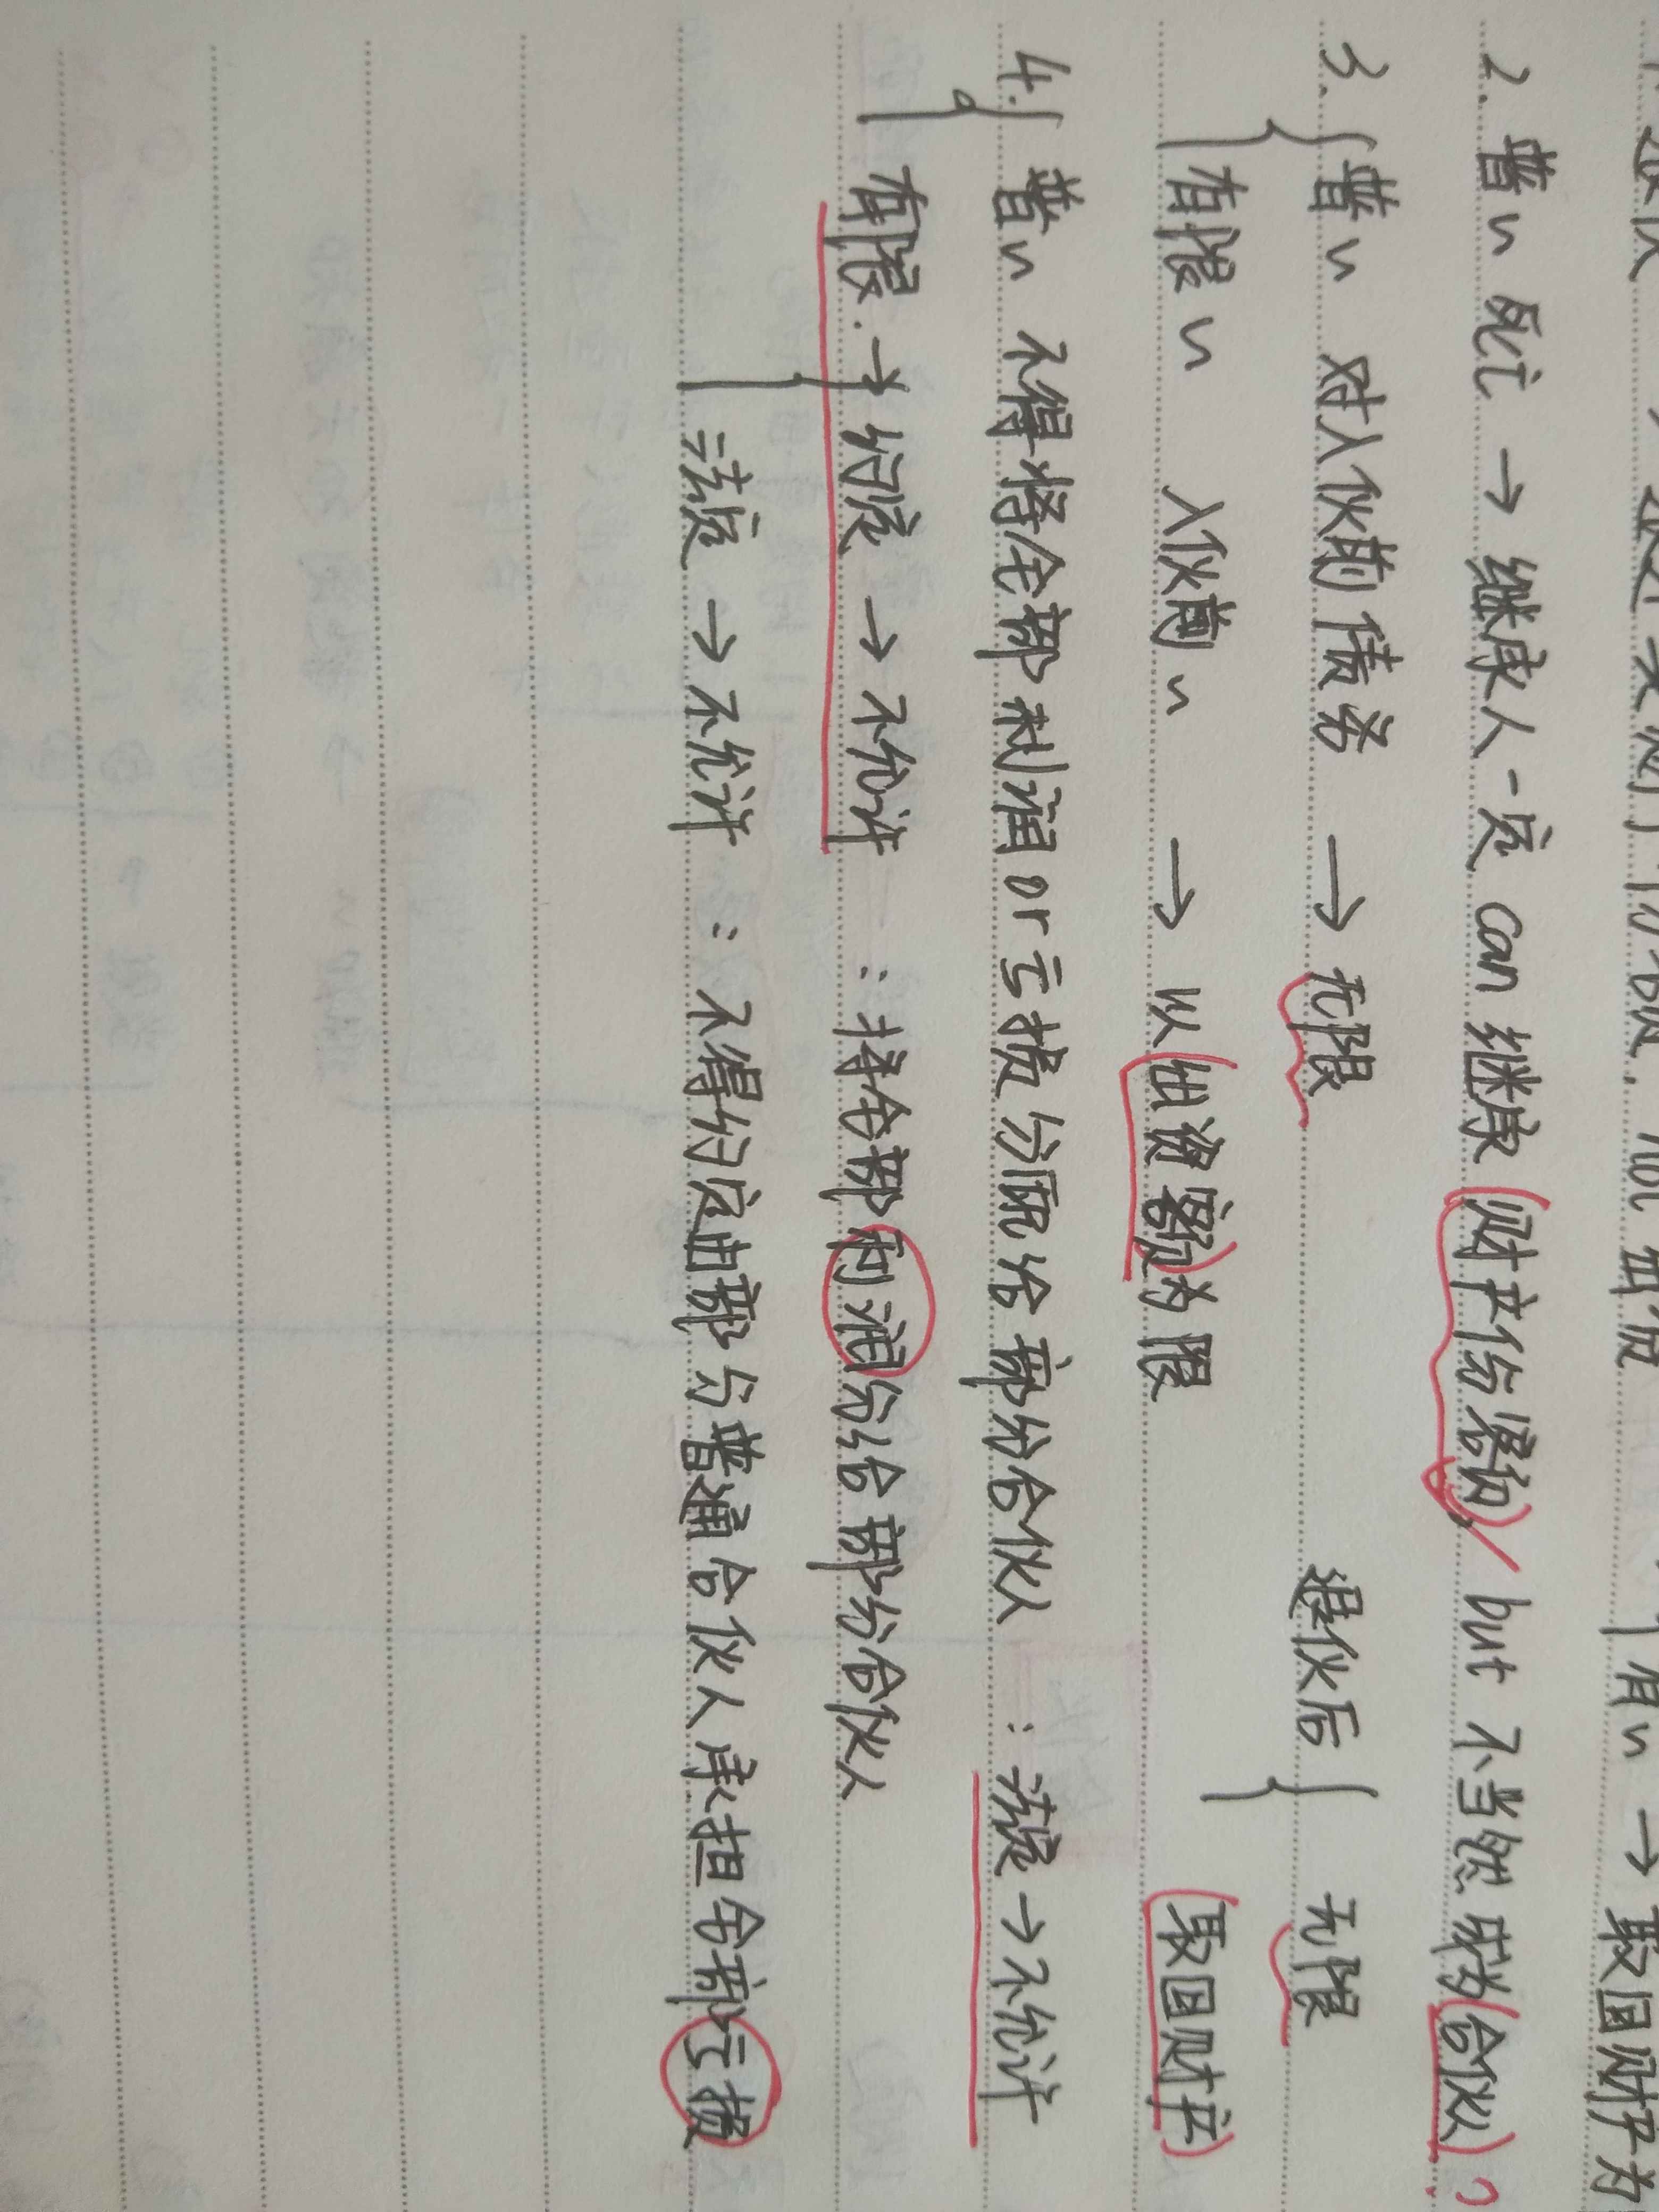 有n → 取回财产为
2. 普n 死亡 → 继承人一定 can 继承 (财产份额) / but 不当然成为(合伙人)
3. { 普n 对入伙前债务 → 无限 退伙后 { 无限
有限n 入伙前n → 以(出资额)为限 (取回财产)
4. { 普n 不得将全部利润 or 亏损分配给部份合伙人 : 法定 → 不允许
有限. → { 约定 → 不允许 : 将全部利润分给部份合伙人
法定 → 不允许 : 不得约定由部分普通合伙人承担全部亏损